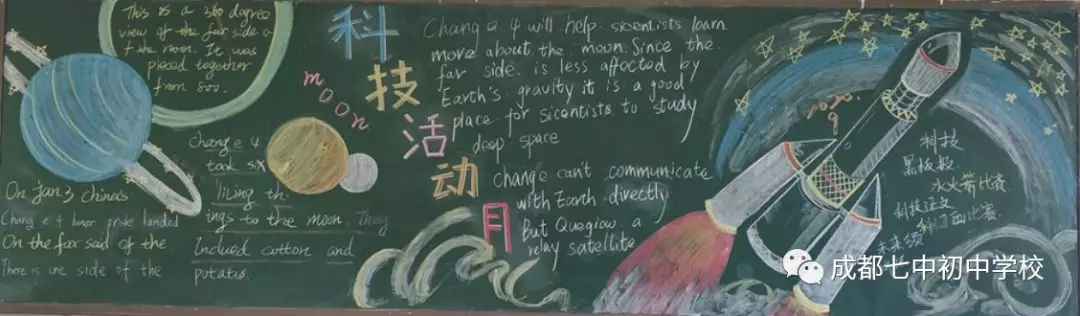 This is a 360 degree
view of the far side o
f the moon. It was
pieced together
from 800.
On Jan 3 chine's
Chang e 4 lunar probe landed
On the far said of the
There is one side of the
Chang e 4
took six
living th-
ings to the moon. They
Inclued cotton and
potatos.
moon
科技活动月
Chang e 4 will help sicentists learn
more about the moon. Since the
far side is less affected by
Earth's gravity it is a good
place for sicentists to study
deep space
change can't communicate
with Earth directly
But Queqiaw a
relay satellite
科技
黑板报
水火箭比赛
科技征文
未来
成都七中初中学校